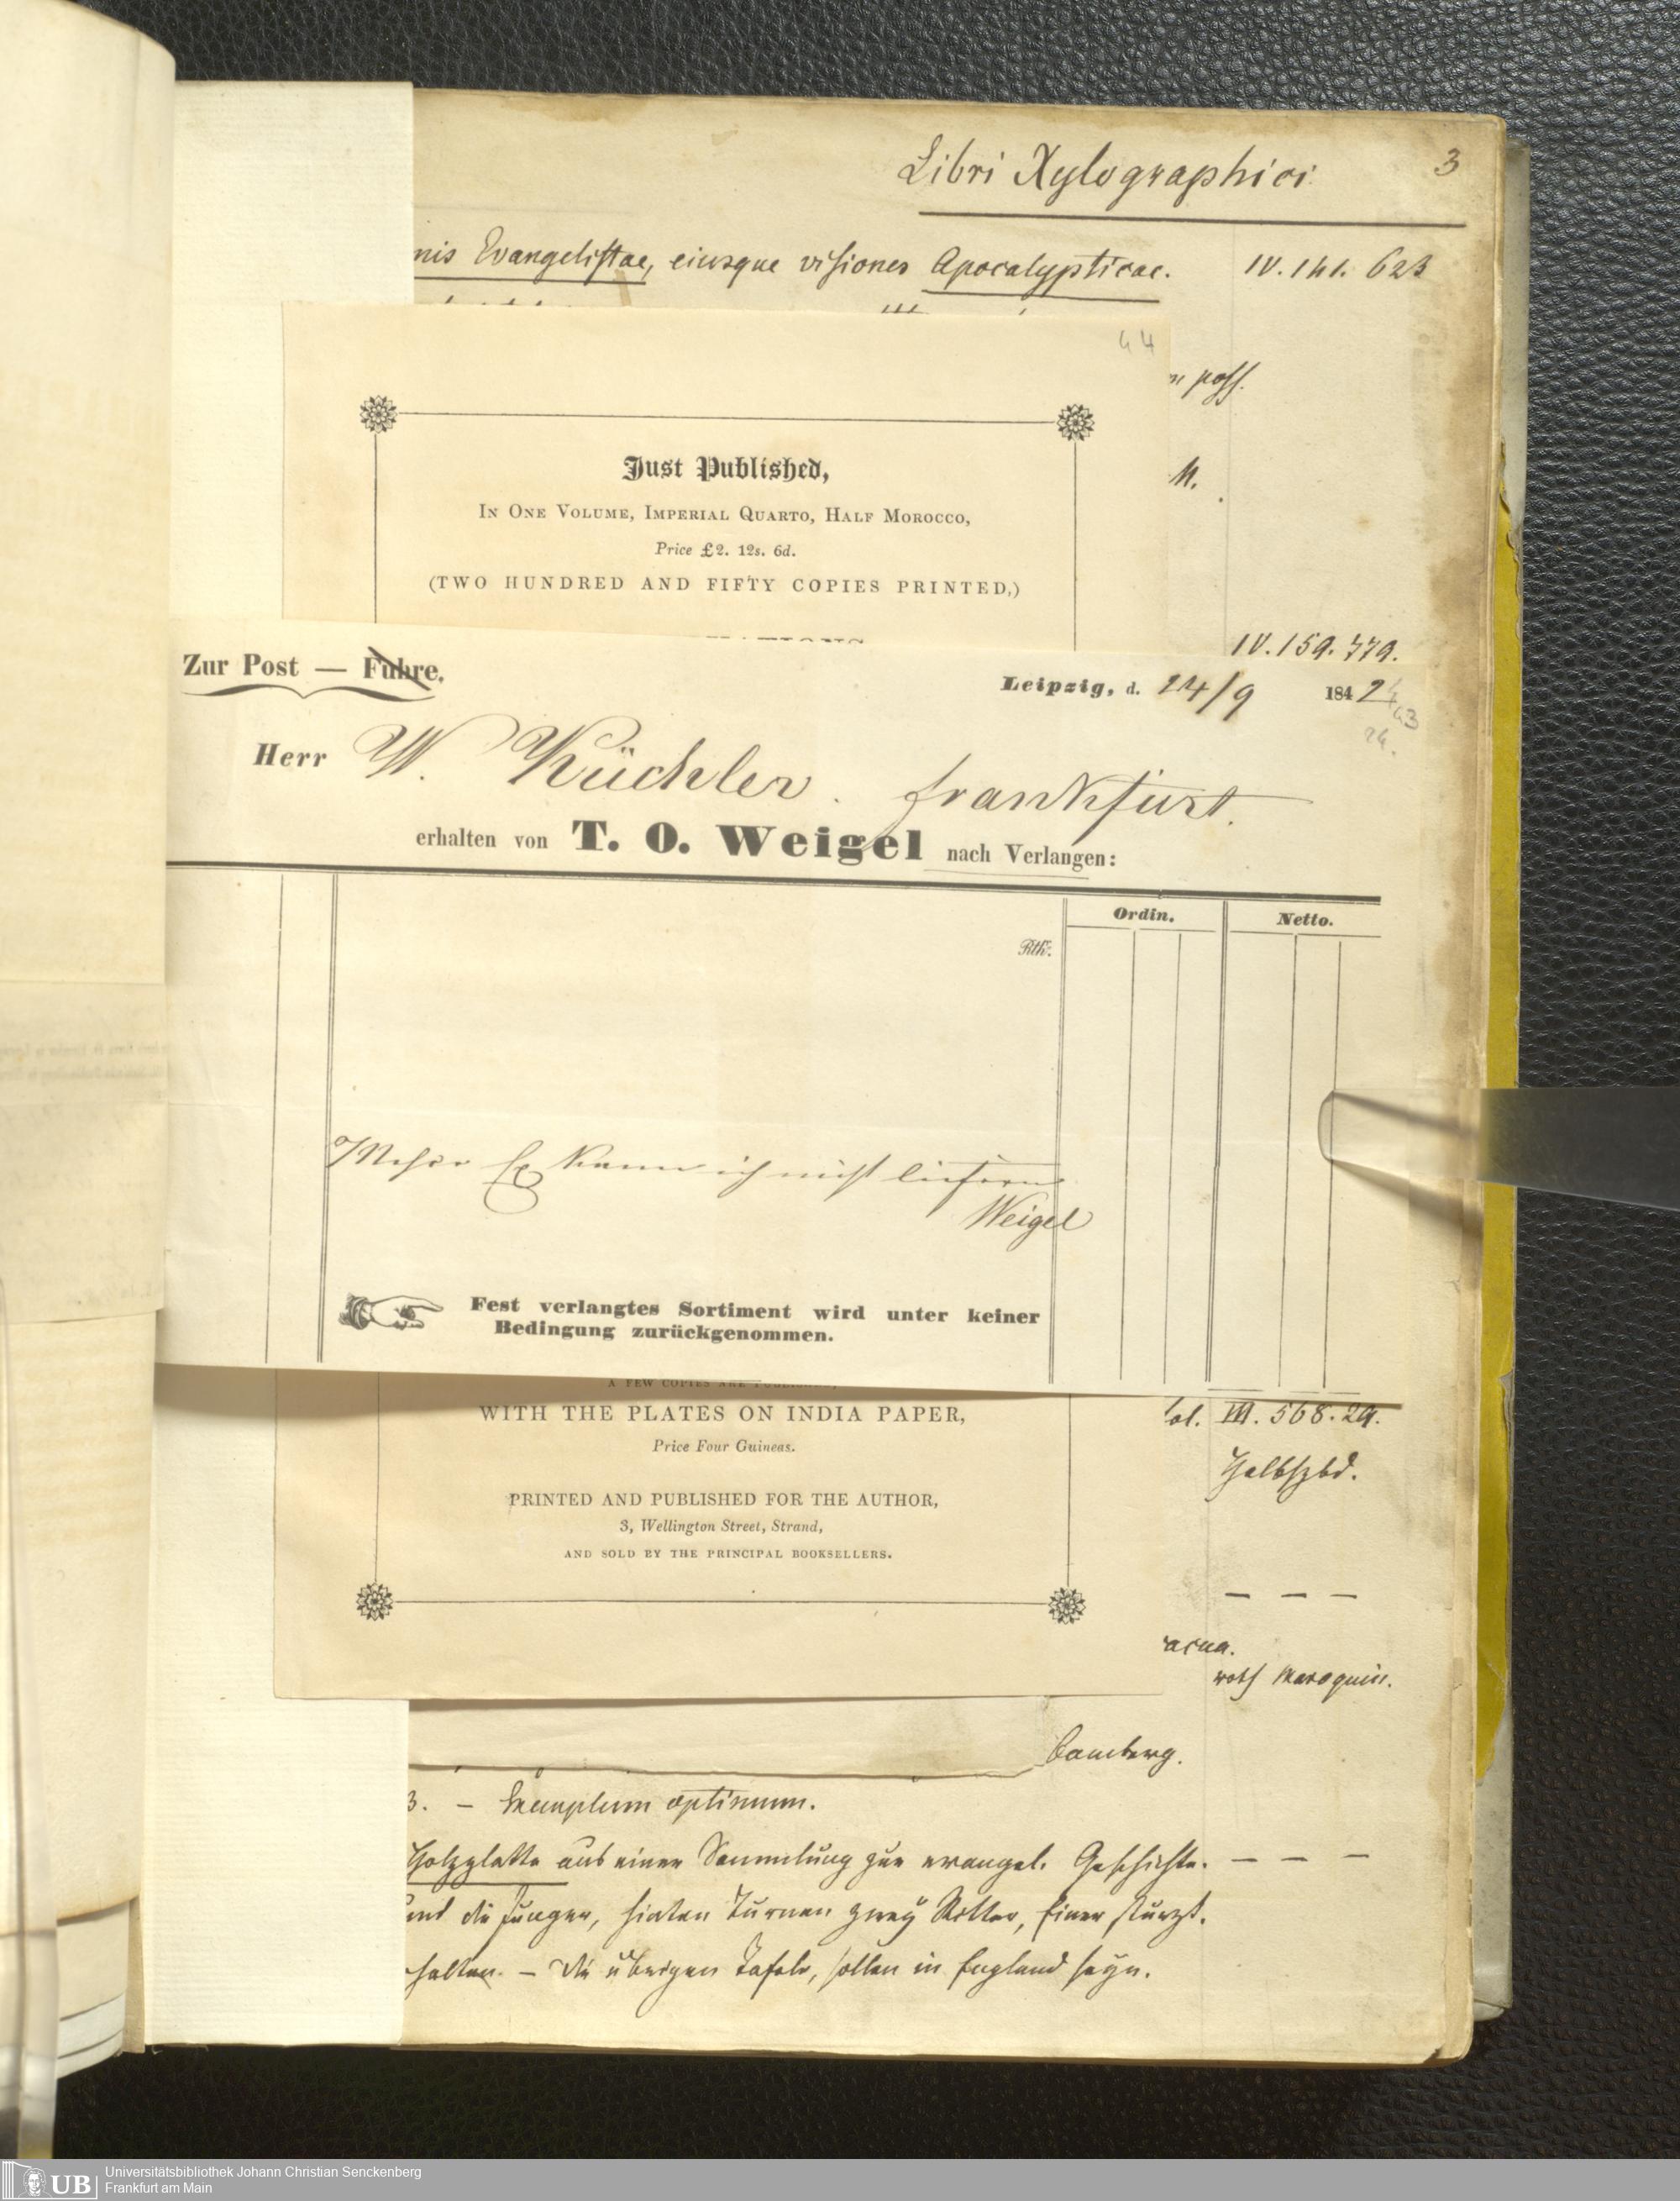 Libri Xylographici
3
nis Evangelistae, eiusque visiones Apocalypticae.
IV. 141. 623
44
poss.
Just Published,
In One Volume, Imperial Quarto, Half Morocco,
M.
Price £2. 12s. 6d.
(TWO HUNDRED AND FIFTY COPIES PRINTED,)
IV. 159. 779.
Zur Post — Fuhre.
Leipzig, d. 24/9 1842
Herr W. Küchler. Frankfurt.
erhalten von T. O. Weigel nach Verlangen:
Ordin. Netto.
Rth.
Mehr Ex kann ich nicht liefern
Weigel
Fest verlangtes Sortiment wird unter keiner
Bedingung zurückgenommen.
A FEW COPIES ARE PUBLISHED,
WITH THE PLATES ON INDIA PAPER,
fol. III. 568. 29.
Price Four Guineas.
Halbfzbd.
PRINTED AND PUBLISHED FOR THE AUTHOR,
3, Wellington Street, Strand,
AND SOLD BY THE PRINCIPAL BOOKSELLERS.
— — —
roth Maroquin.
Bamberg.
3. — Exemplum optimum.
Holzplatte aus einer Sammlung zur evangel. Geschichte. — — —
und die Jünger, hinten Turnen zwey Ritter, Einer stürzt.
halten. — Die übrigen Tafeln, sollen in England seyn.
UB
Universitätsbibliothek Johann Christian Senckenberg
Frankfurt am Main